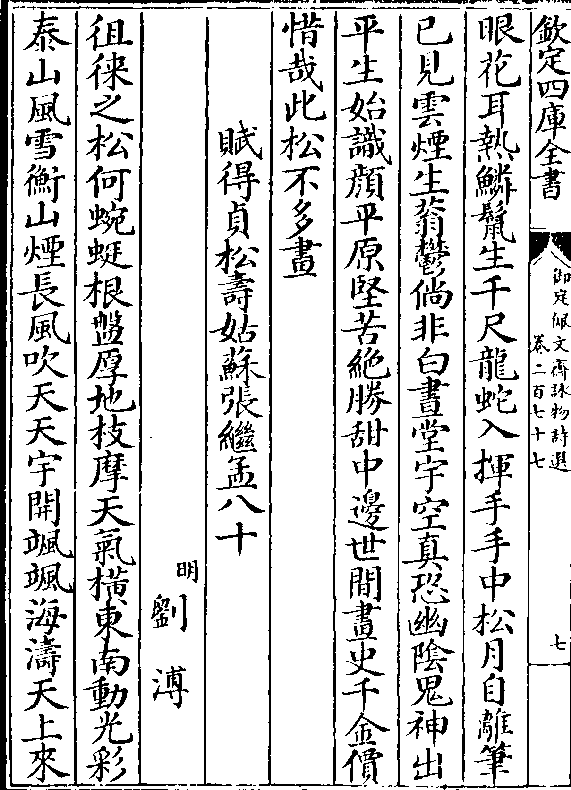 欽定四庫全書
御定佩文齋詠物詩選
卷二百七十七
七
眼花耳熱鱗鬛生千尺龍蛇入揮手手中松月自離筆
已見雲煙生蓊鬱倘非白晝堂宇空真恐幽陰鬼神出
平生始識顔平原堅苦絶勝甜中邊世間畫史千金價
惜哉此松不多畫
賦得貞松壽姑蘇張繼孟八十
明劉溥
徂徠之松何蜿蜒根盤厚地枝摩天氣橫東南動光彩
泰山風雪衡山煙長風吹天天宇開颯颯海濤天上來